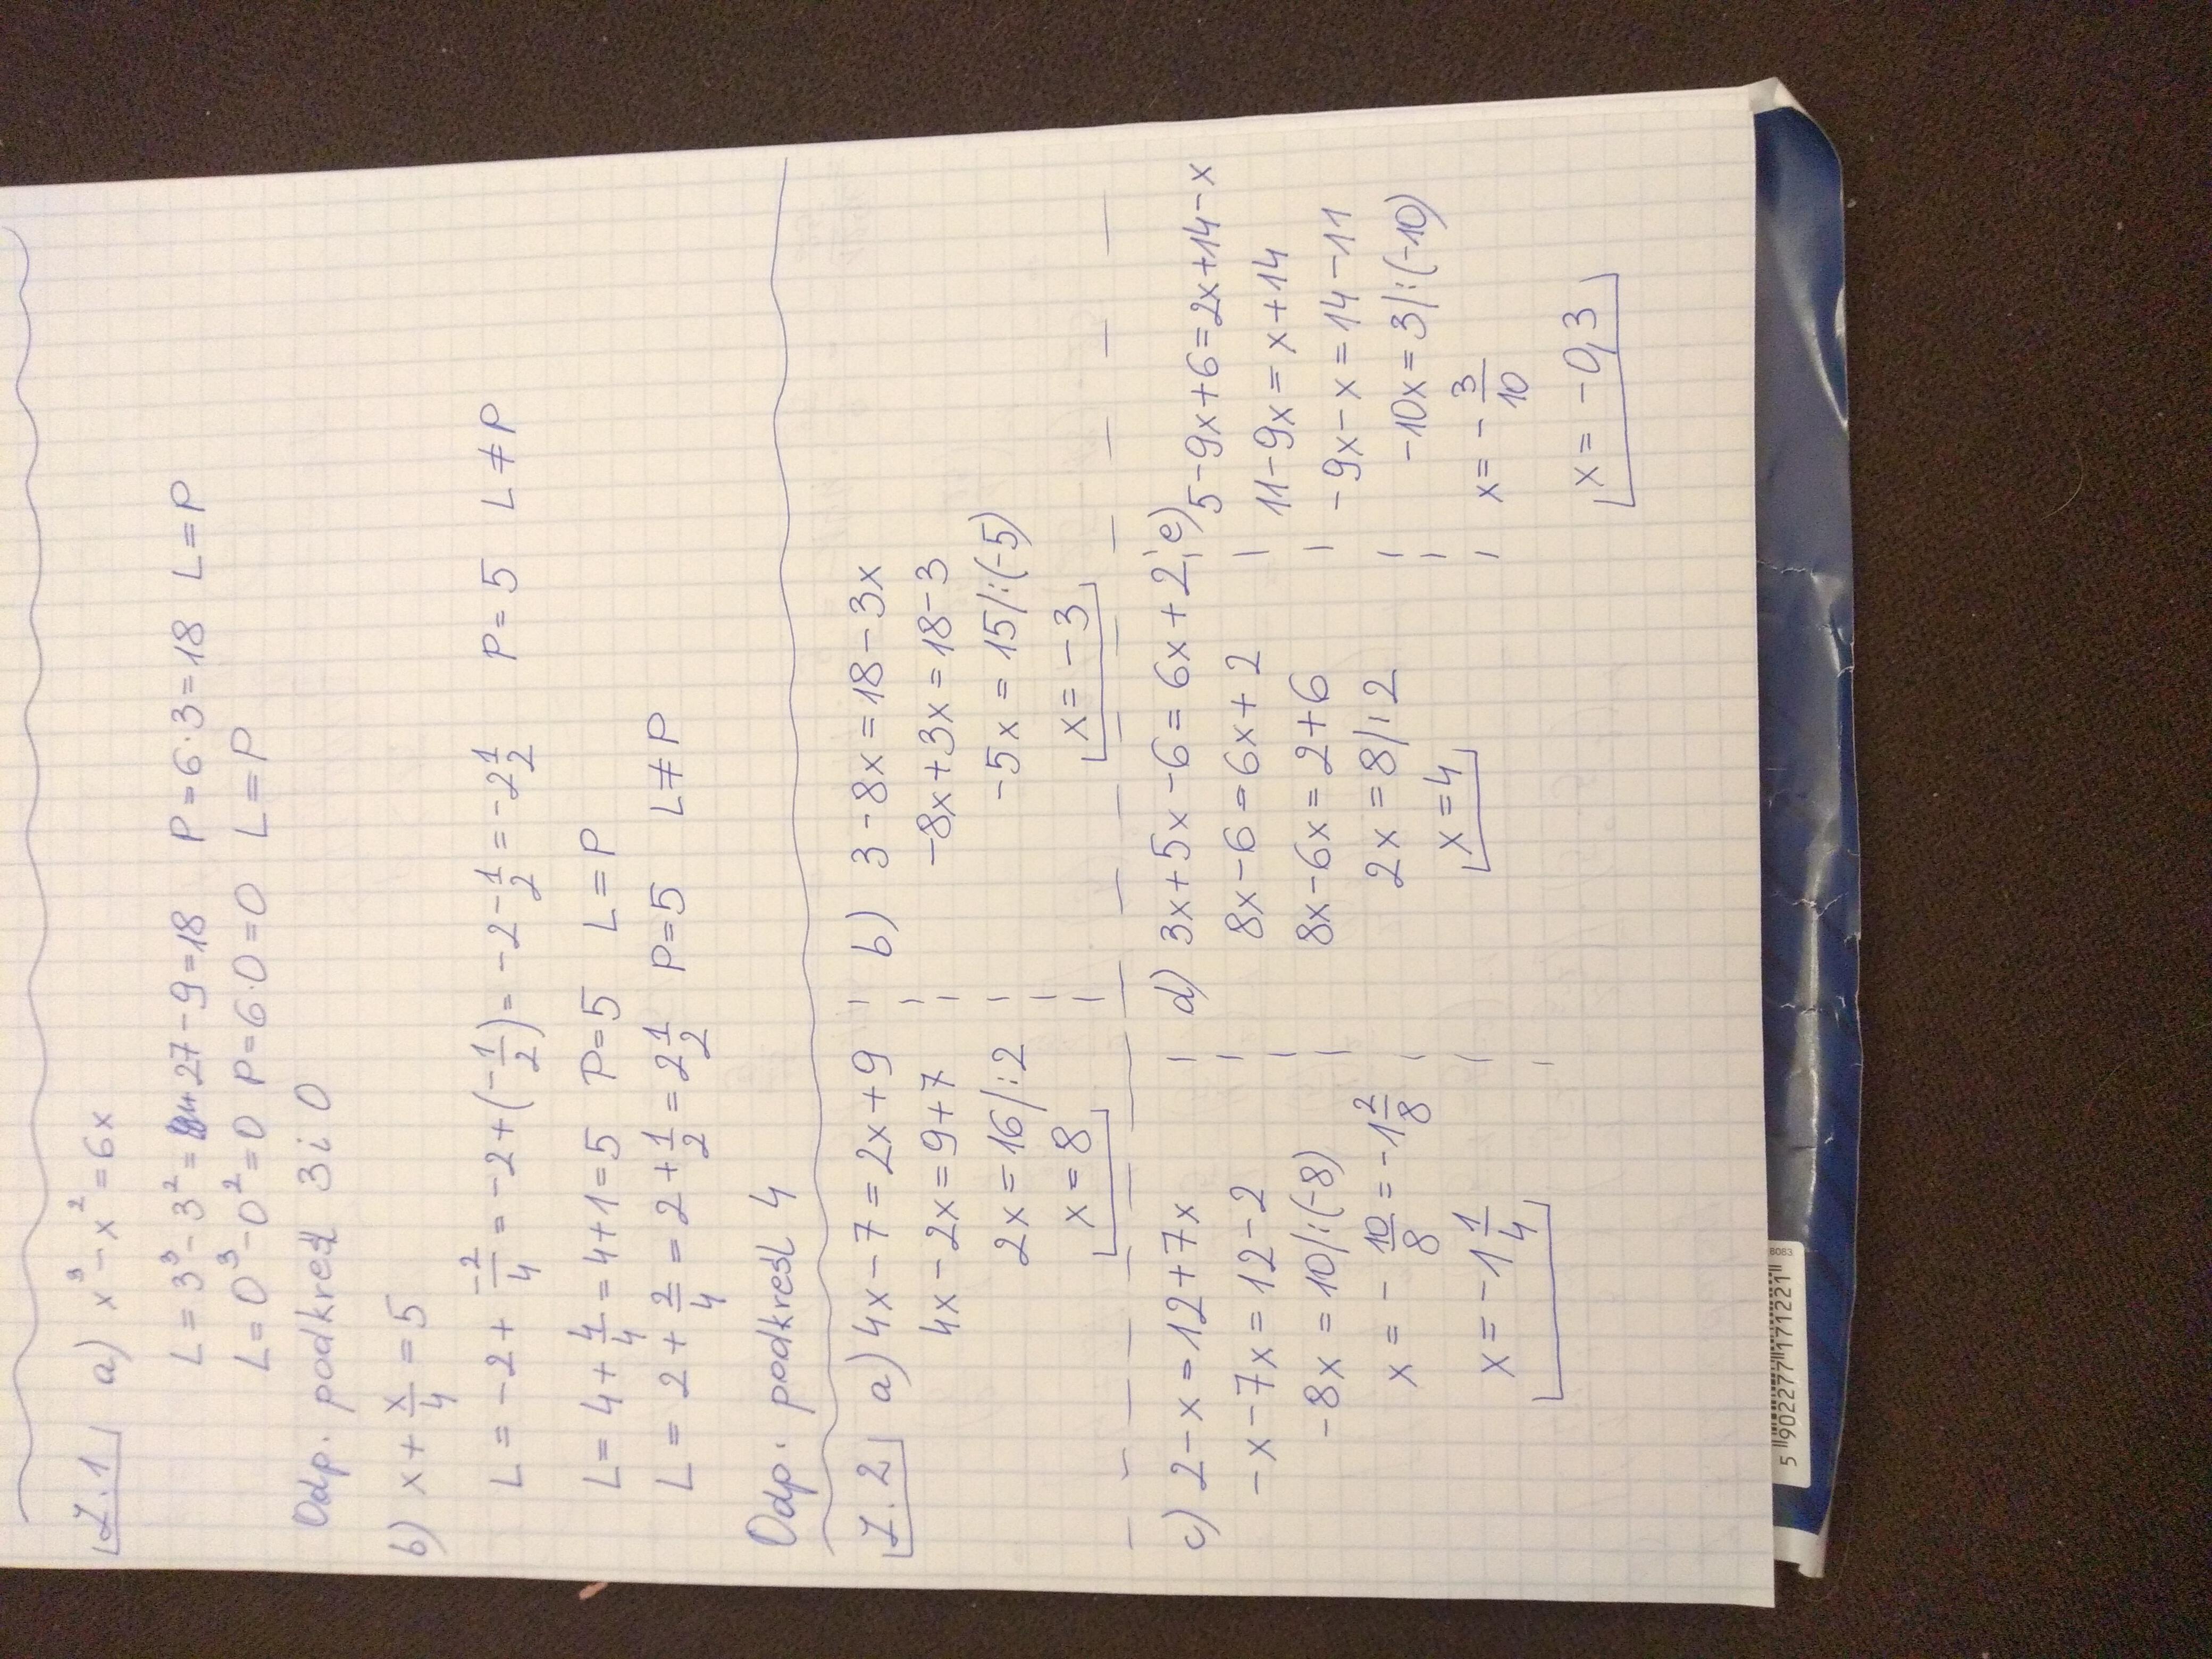 7.1 a) x³ - x² = 6x
L = 3³ - 3² = 27 - 9 = 18 P = 6·3 = 18 L = P
L = 0³ - 0² = 0 P = 6·0 = 0 L = P
Odp. podkreśl 3 i 0
b) x + x/4 = 5
L = -2 + -2/4 = -2 + (-1/2) = -2 - 1/2 = -2 1/2 P = 5 L ≠ P
L = 4 + 4/4 = 4 + 1 = 5 P = 5 L = P
L = 2 + 2/4 = 2 + 1/2 = 2 1/2 P = 5 L ≠ P
Odp. podkreśl 4
7.2 a) 4x - 7 = 2x + 9
4x - 2x = 9 + 7
2x = 16 /:2
x = 8
b) 3 - 8x = 18 - 3x
-8x + 3x = 18 - 3
-5x = 15 /:(-5)
x = -3
c) 2 - x = 12 + 7x
-x - 7x = 12 - 2
-8x = 10 /:(-8)
x = - 10/8 = -1 2/8
x = -1 1/4
d) 3x + 5x - 6 = 6x + 2
8x - 6 = 6x + 2
8x - 6x = 2 + 6
2x = 8 /:2
x = 4
e) 5 - 9x + 6 = 2x + 14 - x
11 - 9x = x + 14
-9x - x = 14 - 11
-10x = 3 /:(-10)
x = - 3/10
x = -0,3
5 902277 171221
8083